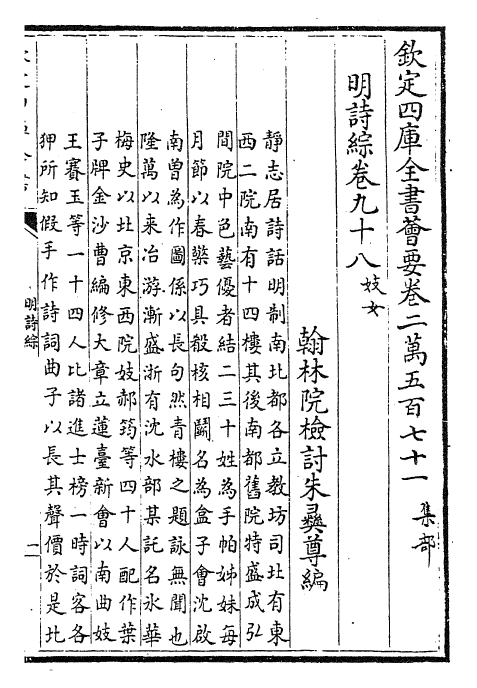 欽定四庫全書薈要卷二萬五百七十一 集部
明詩綜卷九十八 妓女
翰林院檢討朱彝尊編
靜志居詩話明制南北都各立教坊司北有東
西二院南有十四樓其後南都舊院特盛成弘
間院中色藝優者結二三十姓為手帕姊妹每
月節以春檠巧具殽核相鬭名為盒子會沈啟
南曾為作圖係以長句然青樓之題詠無聞也
隆萬以來冶游漸盛浙有沈水部某託名氷華
梅史以北京東西院妓郝筠等四十人配作葉
子牌金沙曹編修大章立蓮臺新會以南曲妓
王賽玉等一十四人比諸進士榜一時詞客各
狎所知假手作詩詞曲子以長其聲價於是北
明詩綜
一